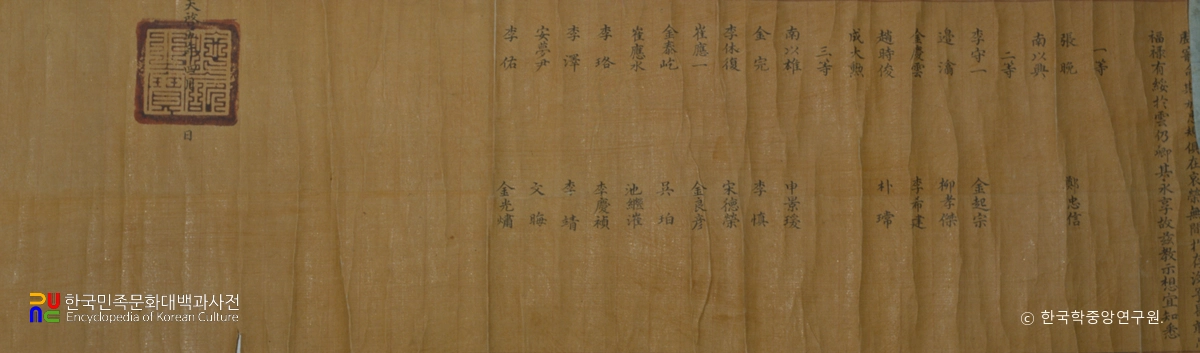 福祿有綏於雲仍卿其永享故茲敎示想宜知悉
一等
張晚 鄭忠信
南以興
二等
李守一 金起宗
邊潝 柳孝傑
金慶雲 李希建
趙時俊 朴瑺
成大勳
三等
南以雄 申景瑗
金完 李愼
李休復 宋德榮
崔應一 金良彦
金泰屹 吳珀
崔應水 池繼漼
李珞 李慶禎
李澤 李靖
安夢尹 文晦
李佑 金光熽
天啓 日
한국민족문화대백과사전
Encyclopedia of Korean Culture
© 한국학중앙연구원.